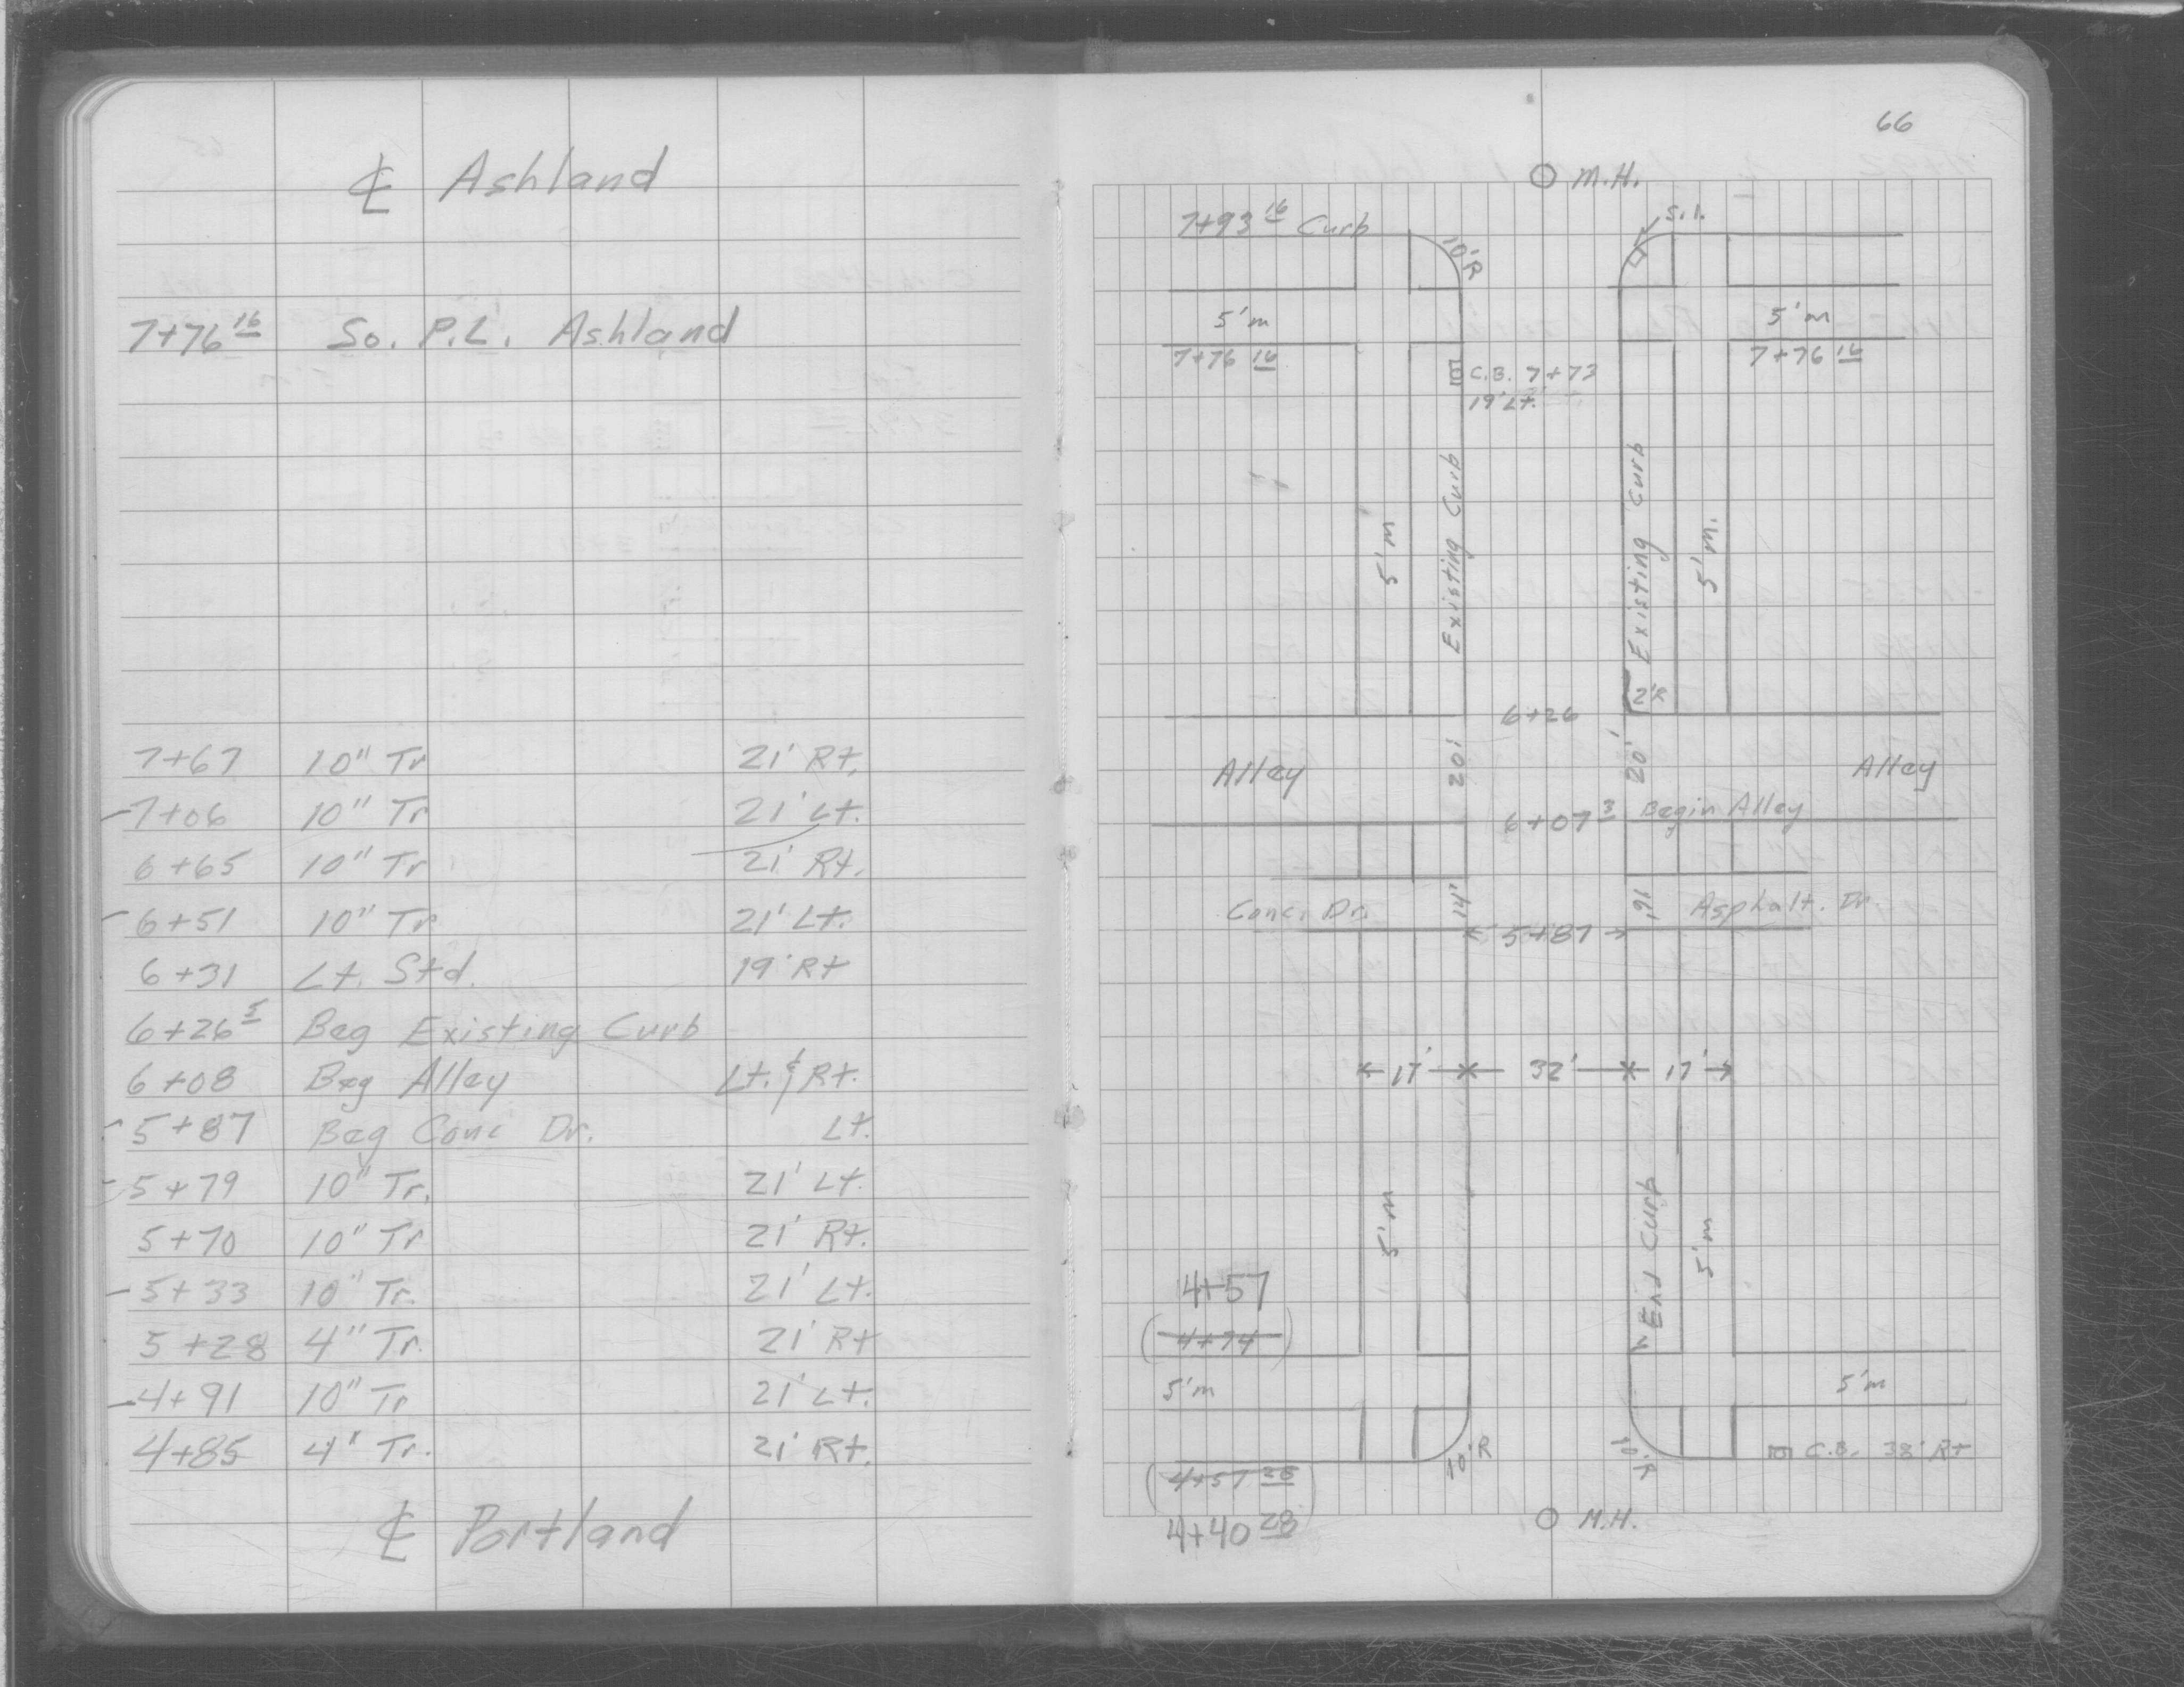 ℄ Ashland
7+76 16 So. P.L. Ashland
7+67 10" Tr 21' Rt.
7+06 10" Tr 21' Lt.
6+65 10" Tr 21' Rt.
6+51 10" Tr 21' Lt.
6+31 Lt. Std. 19' Rt
6+26 5 Beg Existing Curb
6+08 Beg Alley Lt. & Rt.
5+87 Beg Conc Dr. Lt.
5+79 10" Tr. 21' Lt.
5+70 10" Tr 21' Rt.
5+33 10" Tr. 21' Lt.
5+28 4" Tr. 21' Rt
4+91 10" Tr 21' Lt.
4+85 4" Tr. 21' Rt.
℄ Portland
66
M.H.
7+93 16 Curb
10'R
S.I.
5'm
5'm
7+76 16
7+76 16
C.B. 7+73
19' Lt.
5'm
Existing Curb
Existing Curb
5'm.
2'R
6+26
Alley
20'
20'
Alley
6+07 3 Begin Alley
Conc. Dr.
14'
16'
Asphalt. Dr.
5+87
17'
32'
17'
5'm
End Curb
5'm
4+57
(4+74)
5'm
5'm
10'R
10'R
C.B. 38' Rt
(4+57 28)
4+40 28
M.H.